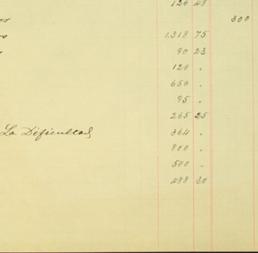 120 48
300
1.318 75
90 23
120 "
650 "
95 "
265 25
La Dificultad 364 "
800 "
500 "
488 30